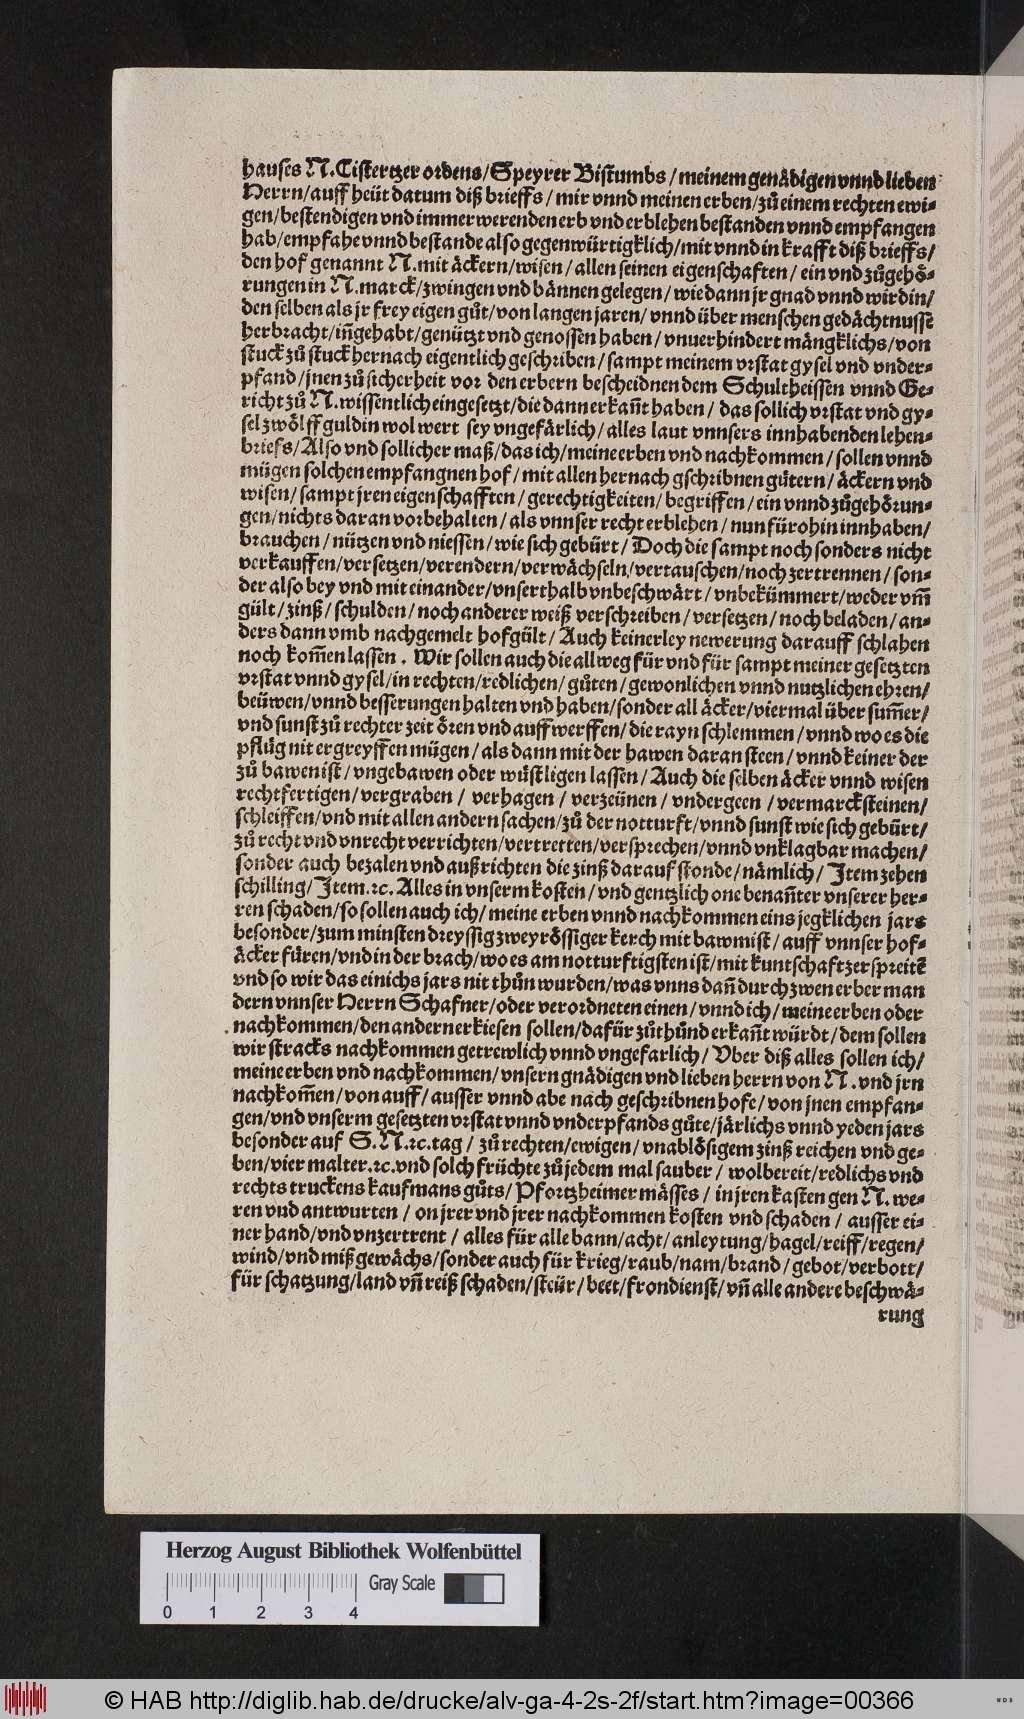 hauses N. Cistertzer ordens/ Speyrer Bistumbs/ meinem genädigen vnnd lieben
Herrn/ auff heüt datum diß brieffs/ mir vnnd meinen erben/ zů einem rechten ewi-
gen/ bestendigen vnd immerwerenden erb vnd erblehen bestanden vnnd empfangen
hab/ empfahe vnnd bestande also gegenwürtigklich/ mit vnnd in krafft diß brieffs/
den hof genannt N. mit äckern/ wisen/ allen seinen eigenschaften/ ein vnd zůgehö-
rungen in N. marck/ zwingen vnd bännen gelegen/ wie dann jr gnad vnnd wirdin/
den selben als jr frey eigen gůt/ von langen jaren/ vnnd über menschen gedächtnusse
herbracht/ iñgehabt/ genützt vnd genossen haben/ vnuerhindert mängklichs/ von
stuck zů stuck hernach eigentlich geschriben/ sampt meinem vrstat gysel vnd vnder-
pfand/ jnen zů sicherheit vor den erbern bescheidnen dem Schultheissen vnnd Ge-
richt zů N. wissentlich eingesetzt/ die dann erkañt haben/ das sollich vrstat vnd gy-
sel zwölff guldin wol wert sey vngefärlich/ alles laut vnnsers innhabenden lehen-
briefs/ Also vnd sollicher maß/ das ich/ meine erben vnd nachkommen/ sollen vnnd
mügen solchen empfangnen hof/ mit allen hernach gschribnen gütern/ äckern vnd
wisen/ sampt jren eigenschafften/ gerechtigkeiten/ begriffen/ ein vnnd zůgehörun-
gen/ nichts daran vorbehalten/ als vnnser recht erblehen/ nun fürohin innhaben/
brauchen/ nützen vnd niessen/ wie sich gebürt/ Doch die sampt noch sonders nicht
verkauffen/ versetzen/ verendern/ verwächseln/ vertauschen/ noch zertrennen/ son-
der also bey vnd mit einander/ vnserthalb vnbeschwärt/ vnbekümmert/ weder vm̃
gült/ zinß/ schulden/ noch anderer weiß verschreiben/ versetzen/ noch beladen/ an-
ders dann vmb nachgemelt hofgült/ Auch keinerley newerung darauff schlahen
noch kom̃en lassen. Wir sollen auch die allweg für vnd für sampt meiner gesetzten
vrstat vnnd gysel/ in rechten/ redlichen/ gůten/ gewonlichen vnnd nutzlichen ehren/
beüwen/ vnnd besserungen halten vnd haben/ sonder all äcker/ viermal über sum̃er/
vnd sunst zů rechter zeit ören vnd auffwerffen/ die rayn schlemmen/ vnnd wo es die
pflüg nit ergreyffen mügen/ als dann mit der hawen daran steen/ vnnd keiner der
zů bawen ist/ vngebawen oder wůstligen lassen/ Auch die selben äcker vnnd wisen
rechtfertigen/ vergraben/ verhagen/ verzeünen/ vndergeen/ vermarcksteinen/
schleiffen/ vnd mit allen andern sachen/ zů der notturft/ vnnd sunst wie sich gebürt/
zů recht vnd vnrecht verrichten/ vertretten/ versprechen/ vnnd vnklagbar machen/
sonder auch bezalen vnd außrichten die zinß darauf stonde/ nämlich/ Item zehen
schilling/ Item. ꝛc. Alles in vnserm kosten/ vnd gentzlich one benañter vnserer her-
ren schaden/ so sollen auch ich/ meine erben vnnd nachkommen eins jegklichen jars
besonder/ zum minsten dreyssig zweyrössiger kerch mit bawmist/ auff vnnser hof-
äcker füren/ vnd in der brach/ wo es am notturftigsten ist/ mit kuntschaft zerspreitẽ
vnd so wir das einichs jars nit thůn wurden/ was vnns dañ durch zwen erber man
dern vnnser Herrn Schafner/ oder verordneten einen/ vnnd ich/ meine erben oder
nachkommen/ den andern erkiesen sollen/ dafür zůthůnd erkañt würdt/ dem sollen
wir stracks nachkommen getrewlich vnnd vngefarlich/ Vber diß alles sollen ich/
meine erben vnd nachkommen/ vnsern gnädigen vnd lieben herrn von N. vnd jrn
nachkom̃en/ von auff/ ausser vnnd abe nach geschribnen hofe/ von jnen empfan-
gen/ vnd vnserm gesetzten vrstat vnnd vnderpfands gůte/ järlichs vnnd yeden jars
besonder auf S. N. ꝛc. tag/ zů rechten/ ewigen/ vnablösigem zinß reichen vnd ge-
ben/ vier malter. ꝛc. vnd solch früchte zů jedem mal sauber/ wolbereit/ redlichs vnd
rechts truckens kaufmans gůts/ Pfortzheimer mässes/ in jren kasten gen N. we-
ren vnd antwurten/ on jrer vnd jrer nachkommen kosten vnd schaden/ ausser ei-
ner hand/ vnd vnzertrent/ alles für alle bann/ acht/ anleytung/ hagel/ reiff/ regen/
wind/ vnd mißgewächs/ sonder auch für krieg/ raub/ nam/ brand/ gebot/ verbott/
für schatzung/ land vñ reiß schaden/ steür/ beet/ frondienst/ vñ alle andere beschwä-
rung
Herzog August Bibliothek Wolfenbüttel
Gray Scale
0 1 2 3 4
© HAB http://diglib.hab.de/drucke/alv-ga-4-2s-2f/start.htm?image=00366